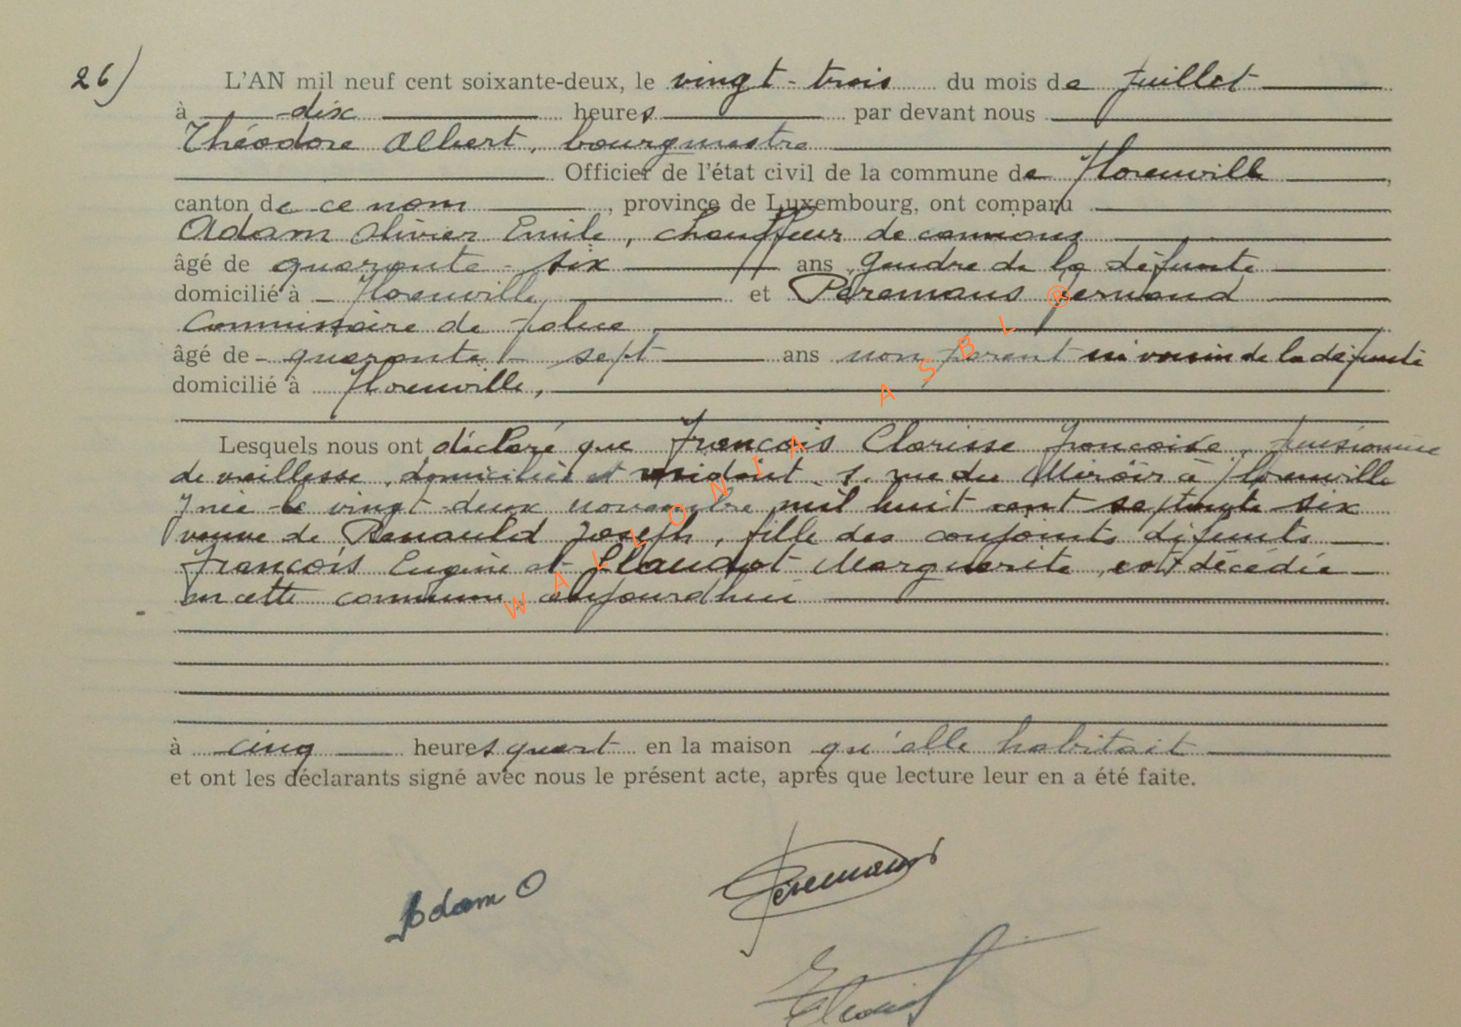 26) L'AN mil neuf cent soixante-deux, le vingt-trois du mois de Juillet
à dix heures par devant nous
Théodore Albert, bourgmestre
Officier de l'état civil de la commune de Florenville
canton de ce nom, province de Luxembourg, ont comparu
Adam Olivier Emile, chauffeur de camions
âgé de quarante-six ans gendre de la défunte
domicilié à Florenville, et Peremans Fernand
Commissaire de police
âgé de quarante-sept ans non parent ni voisin de la défunte
domicilié à Florenville,
Lesquels nous ont déclaré que François Clarisse Françoise, pensionnée
de vieillesse, domiciliée et résidant, rue du Miroir à Florenville
y née le vingt-deux novembre mil huit cent septante six
veuve de Renauld Joseph, fille des conjoints défunts
François Eugène et Claudot Marguerite, est décédée
en cette commune aujourd'hui
à cinq heures quart en la maison qu'elle habitait
et ont les déclarants signé avec nous le présent acte, après que lecture leur en a été faite.
Adam O
Peremans
WALLONIA ASBL ®